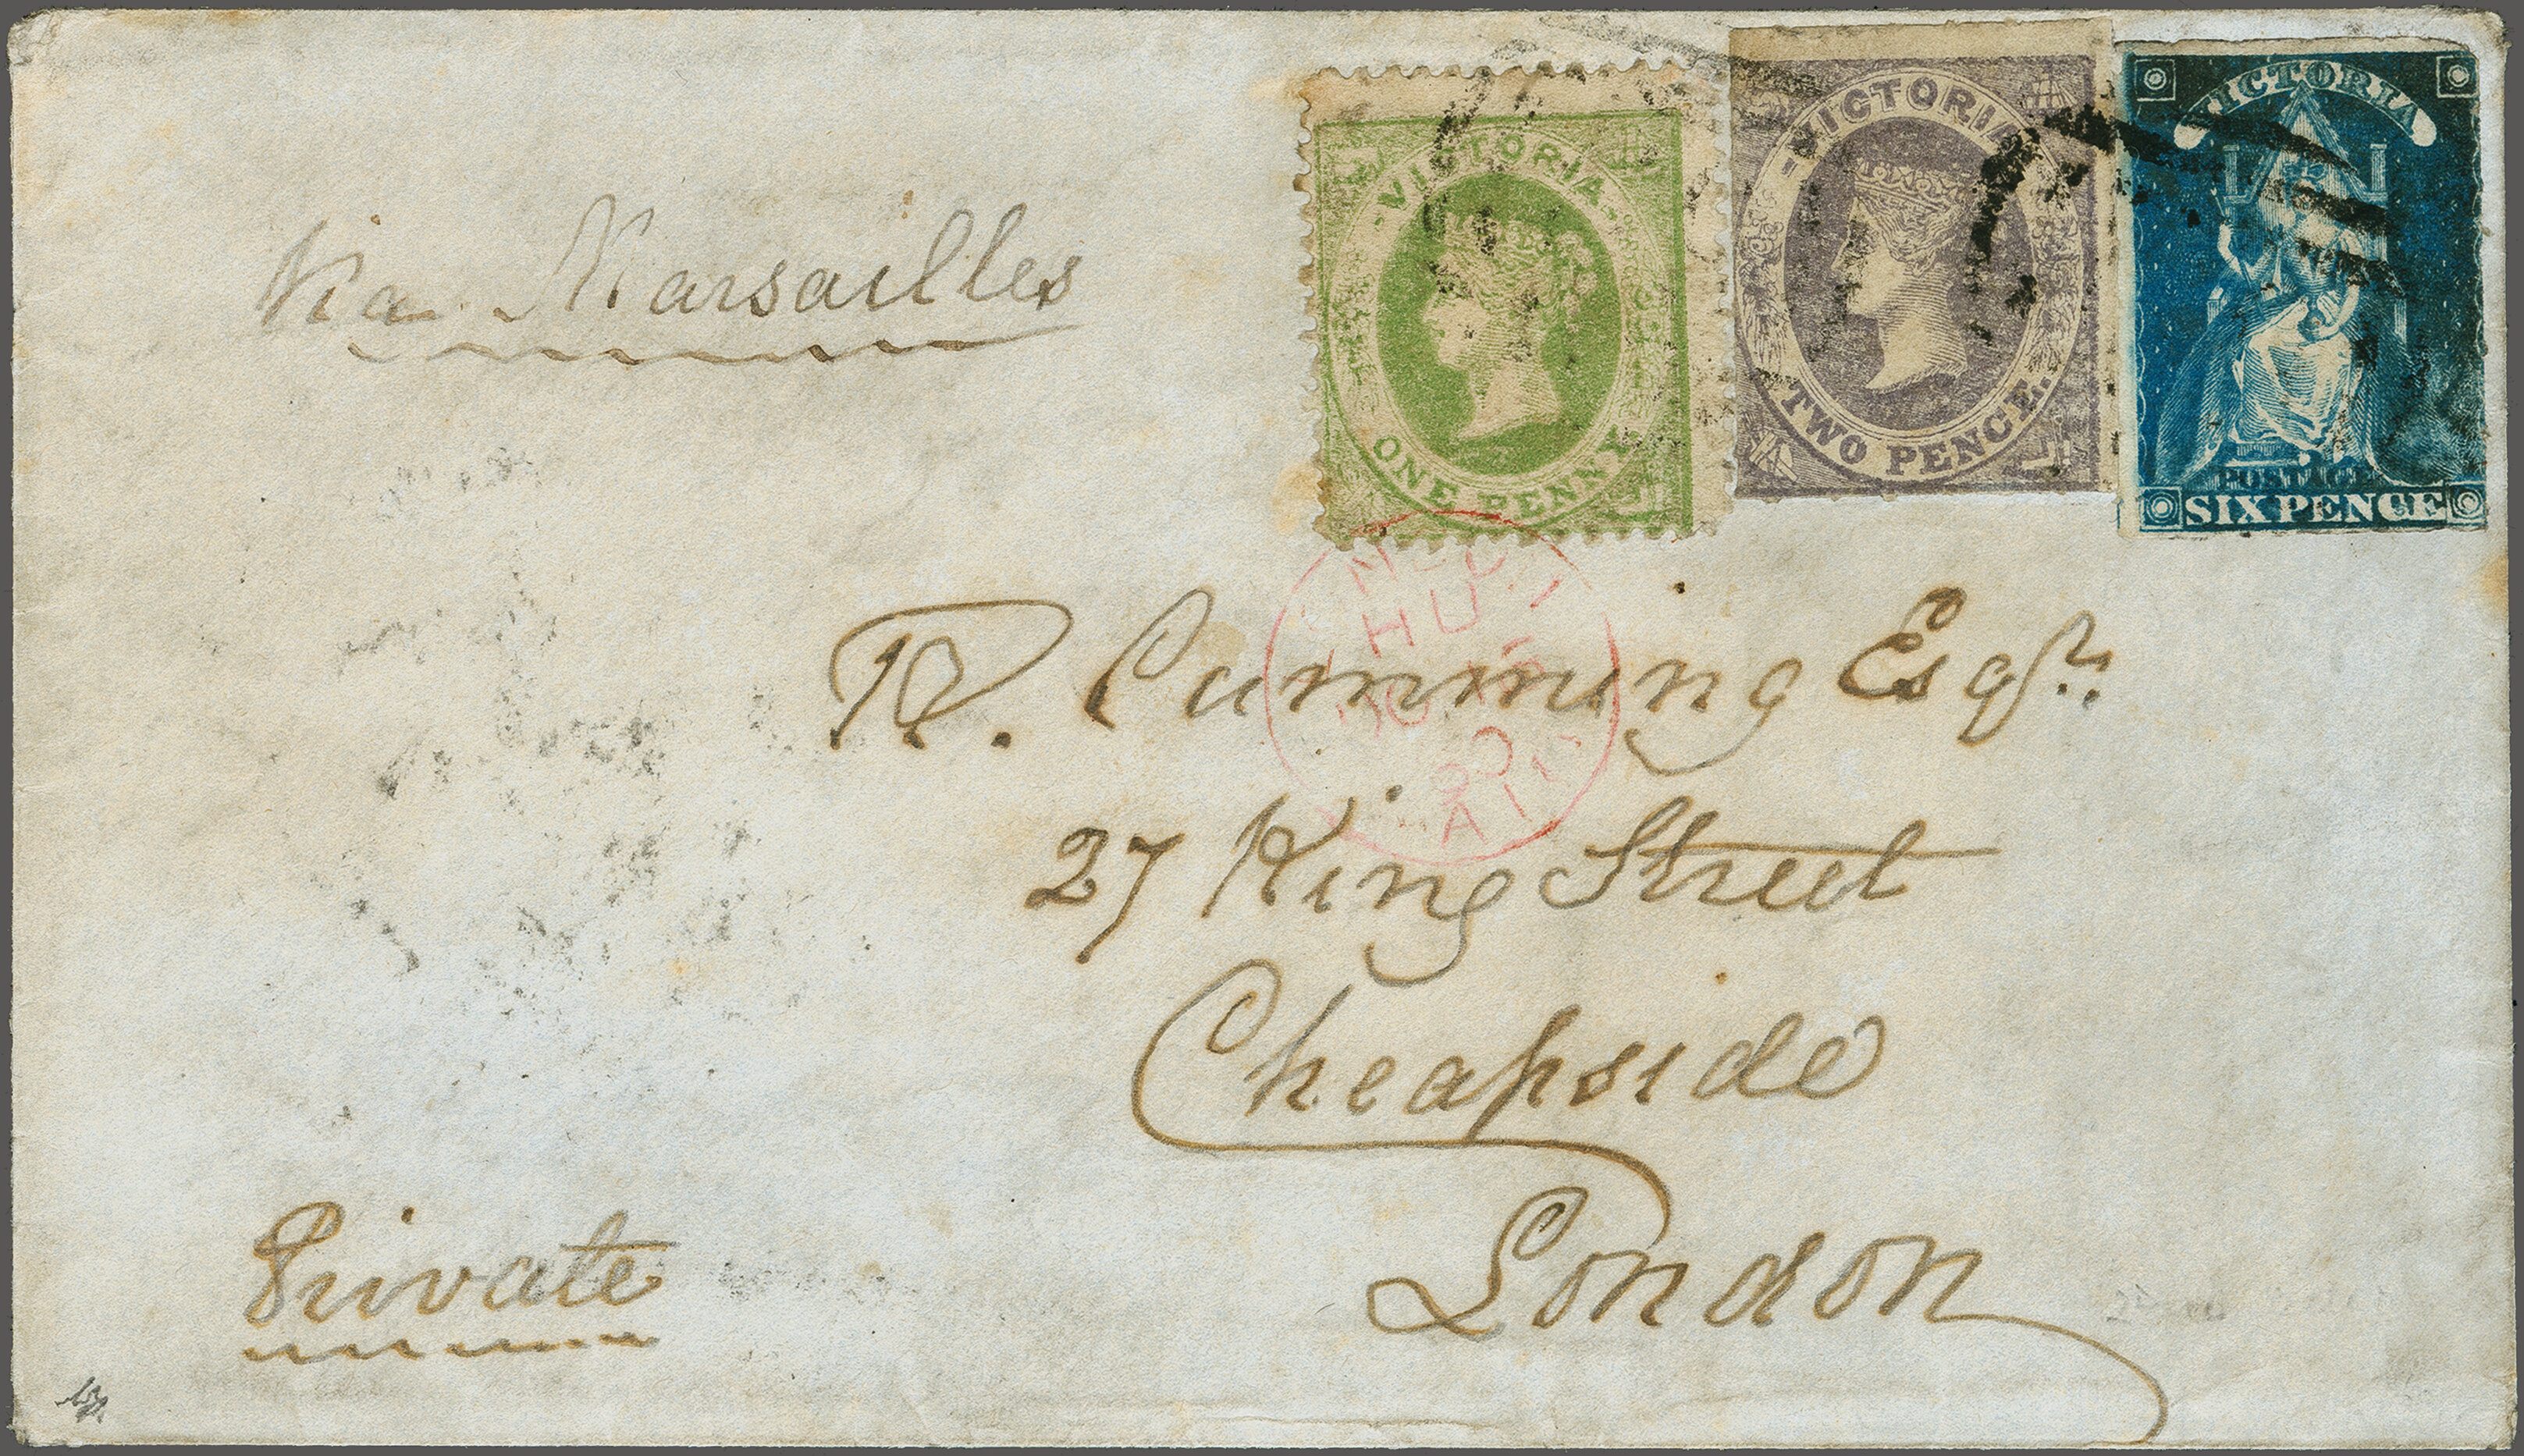 VICTORIA
ONE PENNY
VICTORIA
TWO PENCE.
VICTORIA
POSTAGE
SIX PENCE
Via Marsailles
R. Cumming Esqr.
27 King Street
Cheapside
London
Private